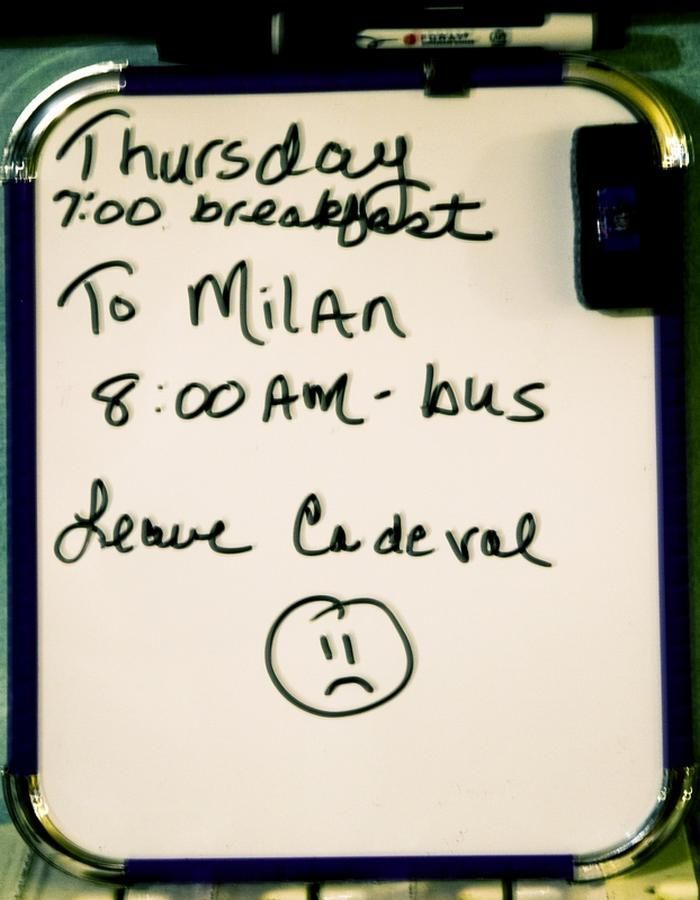 FORAY
Thursday
7:00 breakfast
To MilAn
8:00 AM - bus
Leave Cadeval